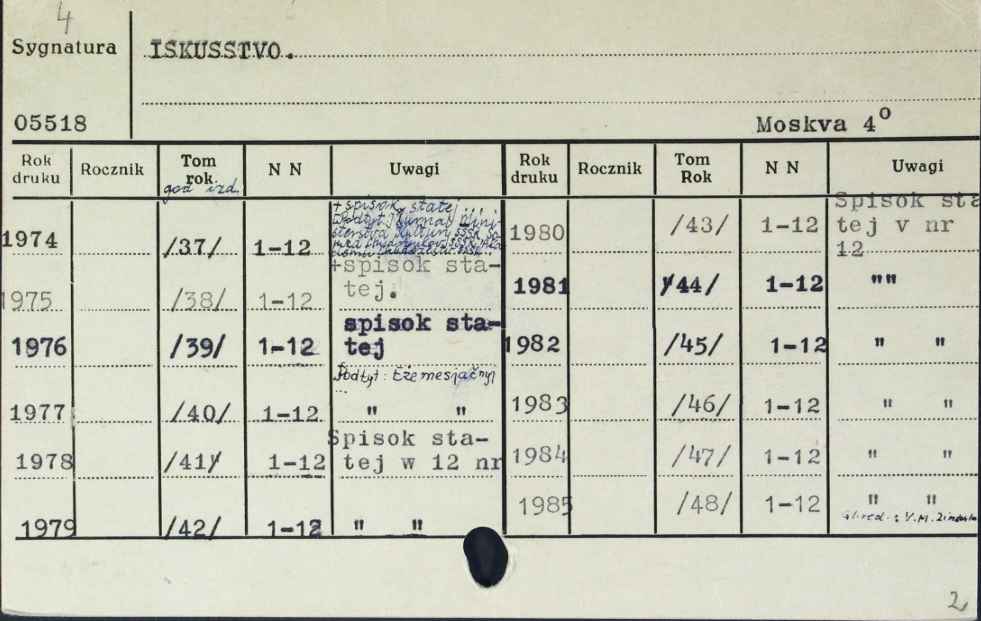 4
Sygnatura ISKUSSTVO.
05518 Moskva 4°
Rok druku Rocznik Tom rok. N N Uwagi
god izd.
1974 /37/ 1-12 + spisok statej
Podtyt: Žurnal Mini-
sterstva kultury SSSR
+spisok sta-
1975 /38/ 1-12 tej.
spisok sta-
1976 /39/ 1-12 tej
Podtyt: Ežemesjačnyj
1977 /40/ 1-12 " "
Spisok sta-
1978 /41/ 1-12 tej w 12 nr
1979 /42/ 1-12 " "
Rok druku Rocznik Tom Rok N N Uwagi
Spisok sta
1980 /43/ 1-12 tej v nr
12
1981 /44/ 1-12 ""
1982 /45/ 1-12 " "
1983 /46/ 1-12 " "
1984 /47/ 1-12 " "
1985 /48/ 1-12 " "
V.M.
2